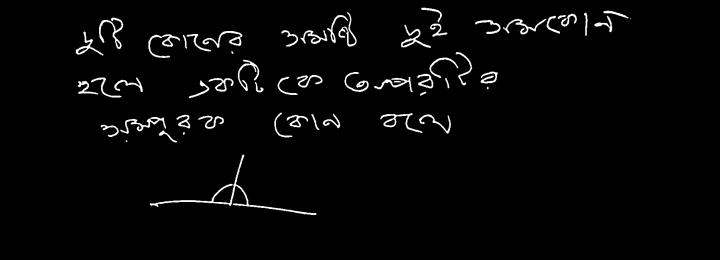 দুটি কোনের সমষ্টি দুই সমকোন
হলে একটি কে অপরটির
সম্পূরক কোন বলে